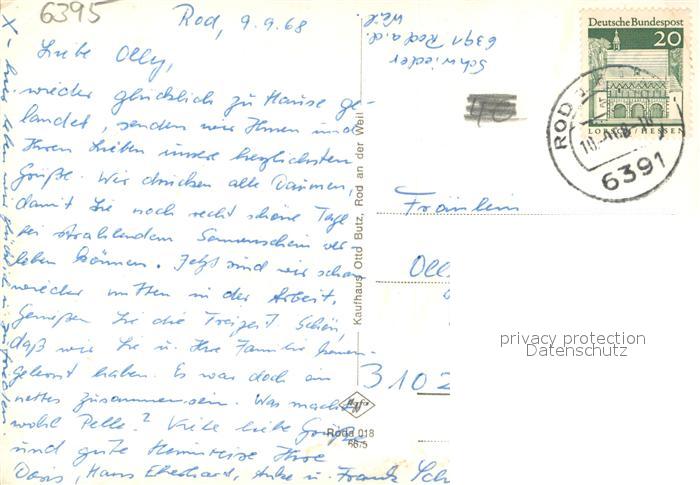 6395
Rod, 9.9.68
Liebe Olly,
wieder glücklich zu Hause ge-
landet, senden wir Ihnen und
Ihren Lieben unsere herzlichsten
Grüße. Wir drücken alle Daumen,
damit Sie noch recht schöne Tage
bei strahlendem Sonnenschein ver
leben können. Jetzt sind wir schon
wieder mitten in der Arbeit.
Genießen Sie die Freizeit. Schön,
daß wir Sie u. Ihre Familie kennen-
gelernt haben. Es war doch ein
nettes Zusammensein. Was macht
wohl Pelle? Viele liebe Grüße
und gute Heimreise Ihre
Doris, Hans Ekkehard, u. Frank Sch
X- hier leben
Kaufhaus Otto Butz, Rod an der Weil
Agfa
Roda 018
68/5
Schwieder
6391 Rod a.d.
Weil
40
Deutsche Bundespost
20
LORSCH/HESSEN
ROD
6391
Fräulein
Oll
3102
privacy protection
Datenschutz